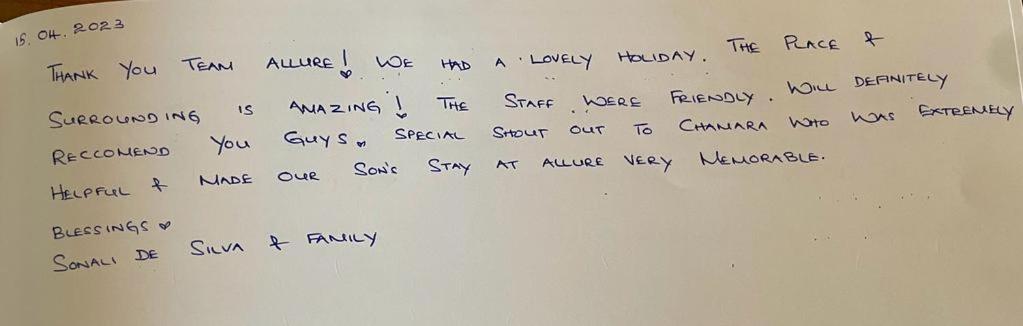 15.04.2023
THANK YOU TEAM ALLURE! WE HAD A LOVELY HOLIDAY. THE PLACE &
SURROUNDING IS AMAZING! THE STAFF WERE FRIENDLY. WILL DEFINITELY
RECCOMEND YOU GUYS. SPECIAL SHOUT OUT TO CHAMARA WHO WAS EXTREMELY
HELPFUL & MADE OUR SON'S STAY AT ALLURE VERY MEMORABLE.
BLESSINGS ♡
SONALI DE SILVA & FAMILY